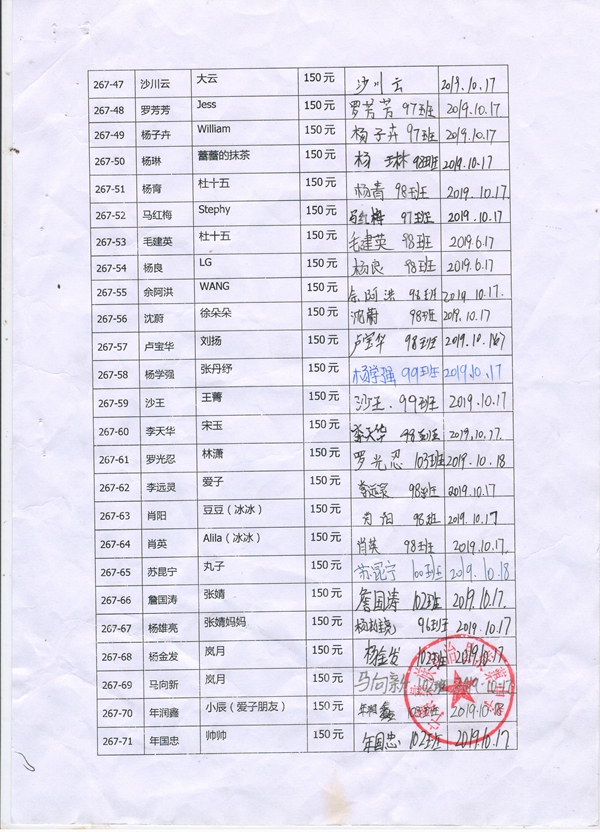 267-47 沙川云 大云 150元 沙川云 2019.10.17
267-48 罗芳芳 Jess 150元 罗芳芳 97班 2019.10.17
267-49 杨子卉 William 150元 杨子卉 97班 2019.10.17
267-50 杨琳 蔷蔷的抹茶 150元 杨琳 98班 2019.10.17
267-51 杨青 杜十五 150元 杨青 98班 2019.10.17
267-52 马红梅 Stephy 150元 马红梅 97班 2019.10.17
267-53 毛建英 杜十五 150元 毛建英 98班 2019.6.17
267-54 杨良 LG 150元 杨良 98班 2019.6.17
267-55 余阿洪 WANG 150元 余阿洪 98班 2019.10.17.
267-56 沈蔚 徐朵朵 150元 沈蔚 98班 2019.10.17
267-57 卢宝华 刘扬 150元 卢宝华 98班
267-58 杨学强 张丹纾 150元 杨学强 99班 2019.10.17
267-59 沙王 王菁 150元 沙王. 99班 2019.10.17
267-60 李天华 宋玉 150元 李天华 98班 2019.10.17.
267-61 罗光忍 林潇 150元 罗光忍 103班 2019.10.18
267-62 李远灵 爱子 150元 李远灵 98班 2019.10.17
267-63 肖阳 豆豆（冰冰） 150元 肖阳 98班 2019.10.17
267-64 肖英 Alila（冰冰） 150元 肖英 98班 2019.10.17.
267-65 苏昆宁 丸子 150元 苏昆宁 100班 2019.10.18
267-66 詹国涛 张婧 150元 詹国涛 102班 2019.10.17.
267-67 杨雄亮 张婧妈妈 150元 96班 2019.10.17
267-68 杨金发 岚月 150元 杨金发 102班 2019.10.17
267-69 马向新 岚月 150元 马向新 102班 2019.10.17
267-70 年润鑫 小辰（爱子朋友） 150元 年润鑫 103班 2019.10.18
267-71 年国忠 帅帅 150元 年国忠 102班 2019.10.17.